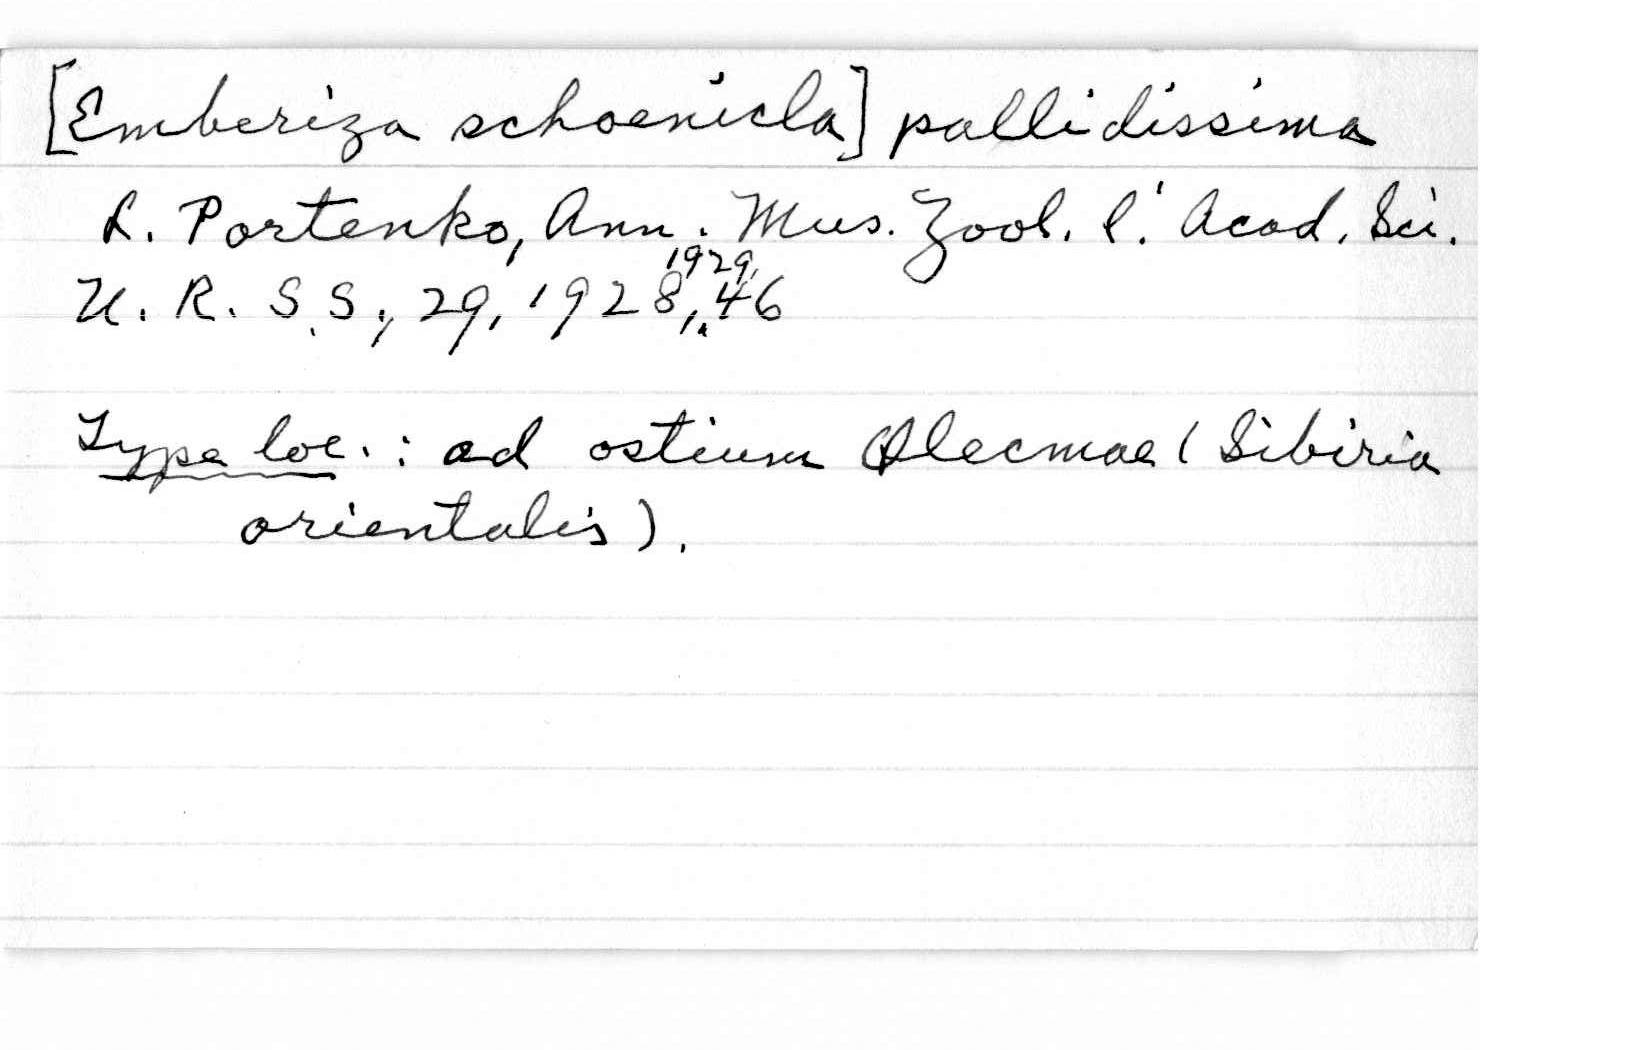 [Emberiza schoenicla] pallidissima
L. Portenko, Ann. Mus. Zool. l' Acad. Sci.
U. R. S. S., 29, 1928, 1929, 46
Type loc.: ad ostium Olecmae (Sibiria
orientalis).